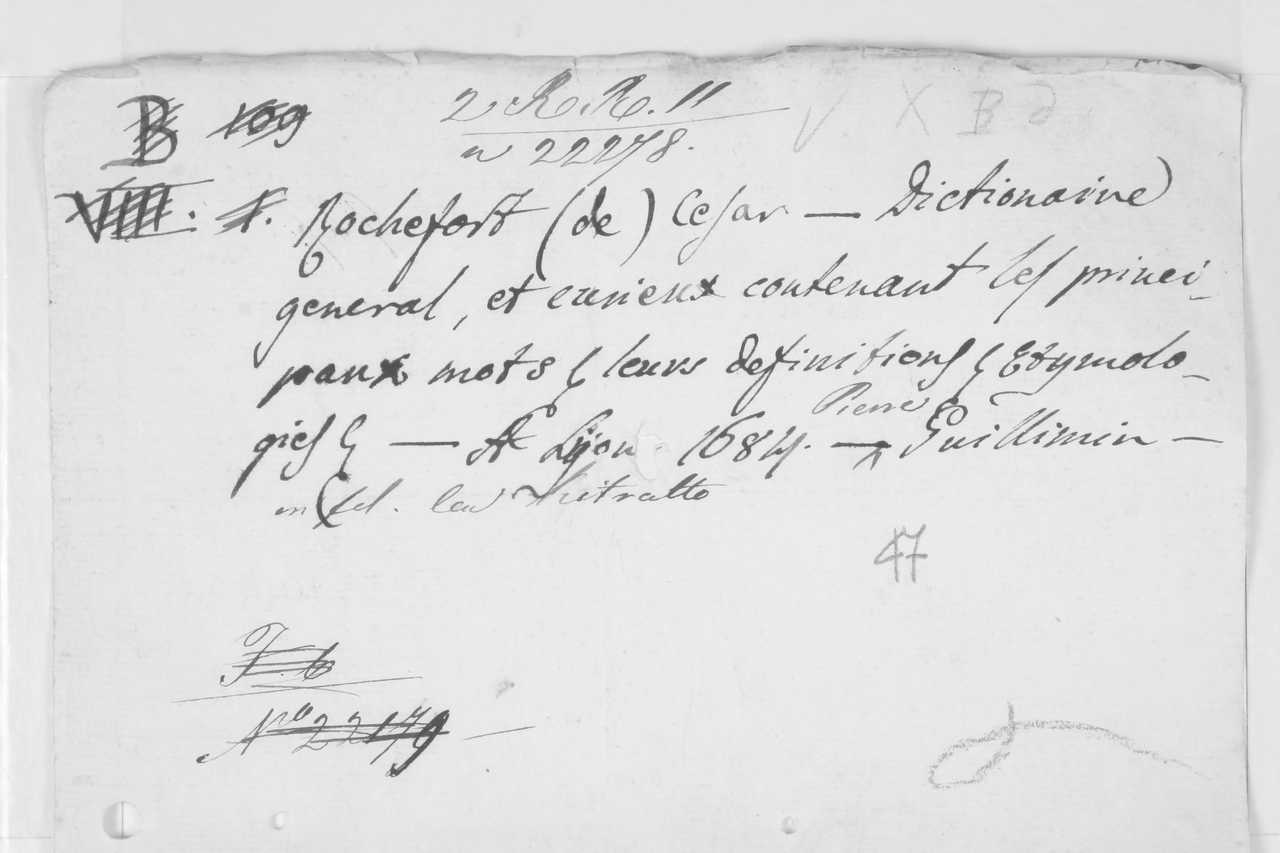 B 109
2 R. R. 11
n 22278.
V X B d
VIII. 1. Rochefort (de) Cesar — Dictionaire
general, et curieux contenant les princi-
paux mots & leurs definitions & Etymolo-
gies & — A Lyon 1684. — Pierre Guillimin —
in fol. con ritratto
47
F. 6
No 22179